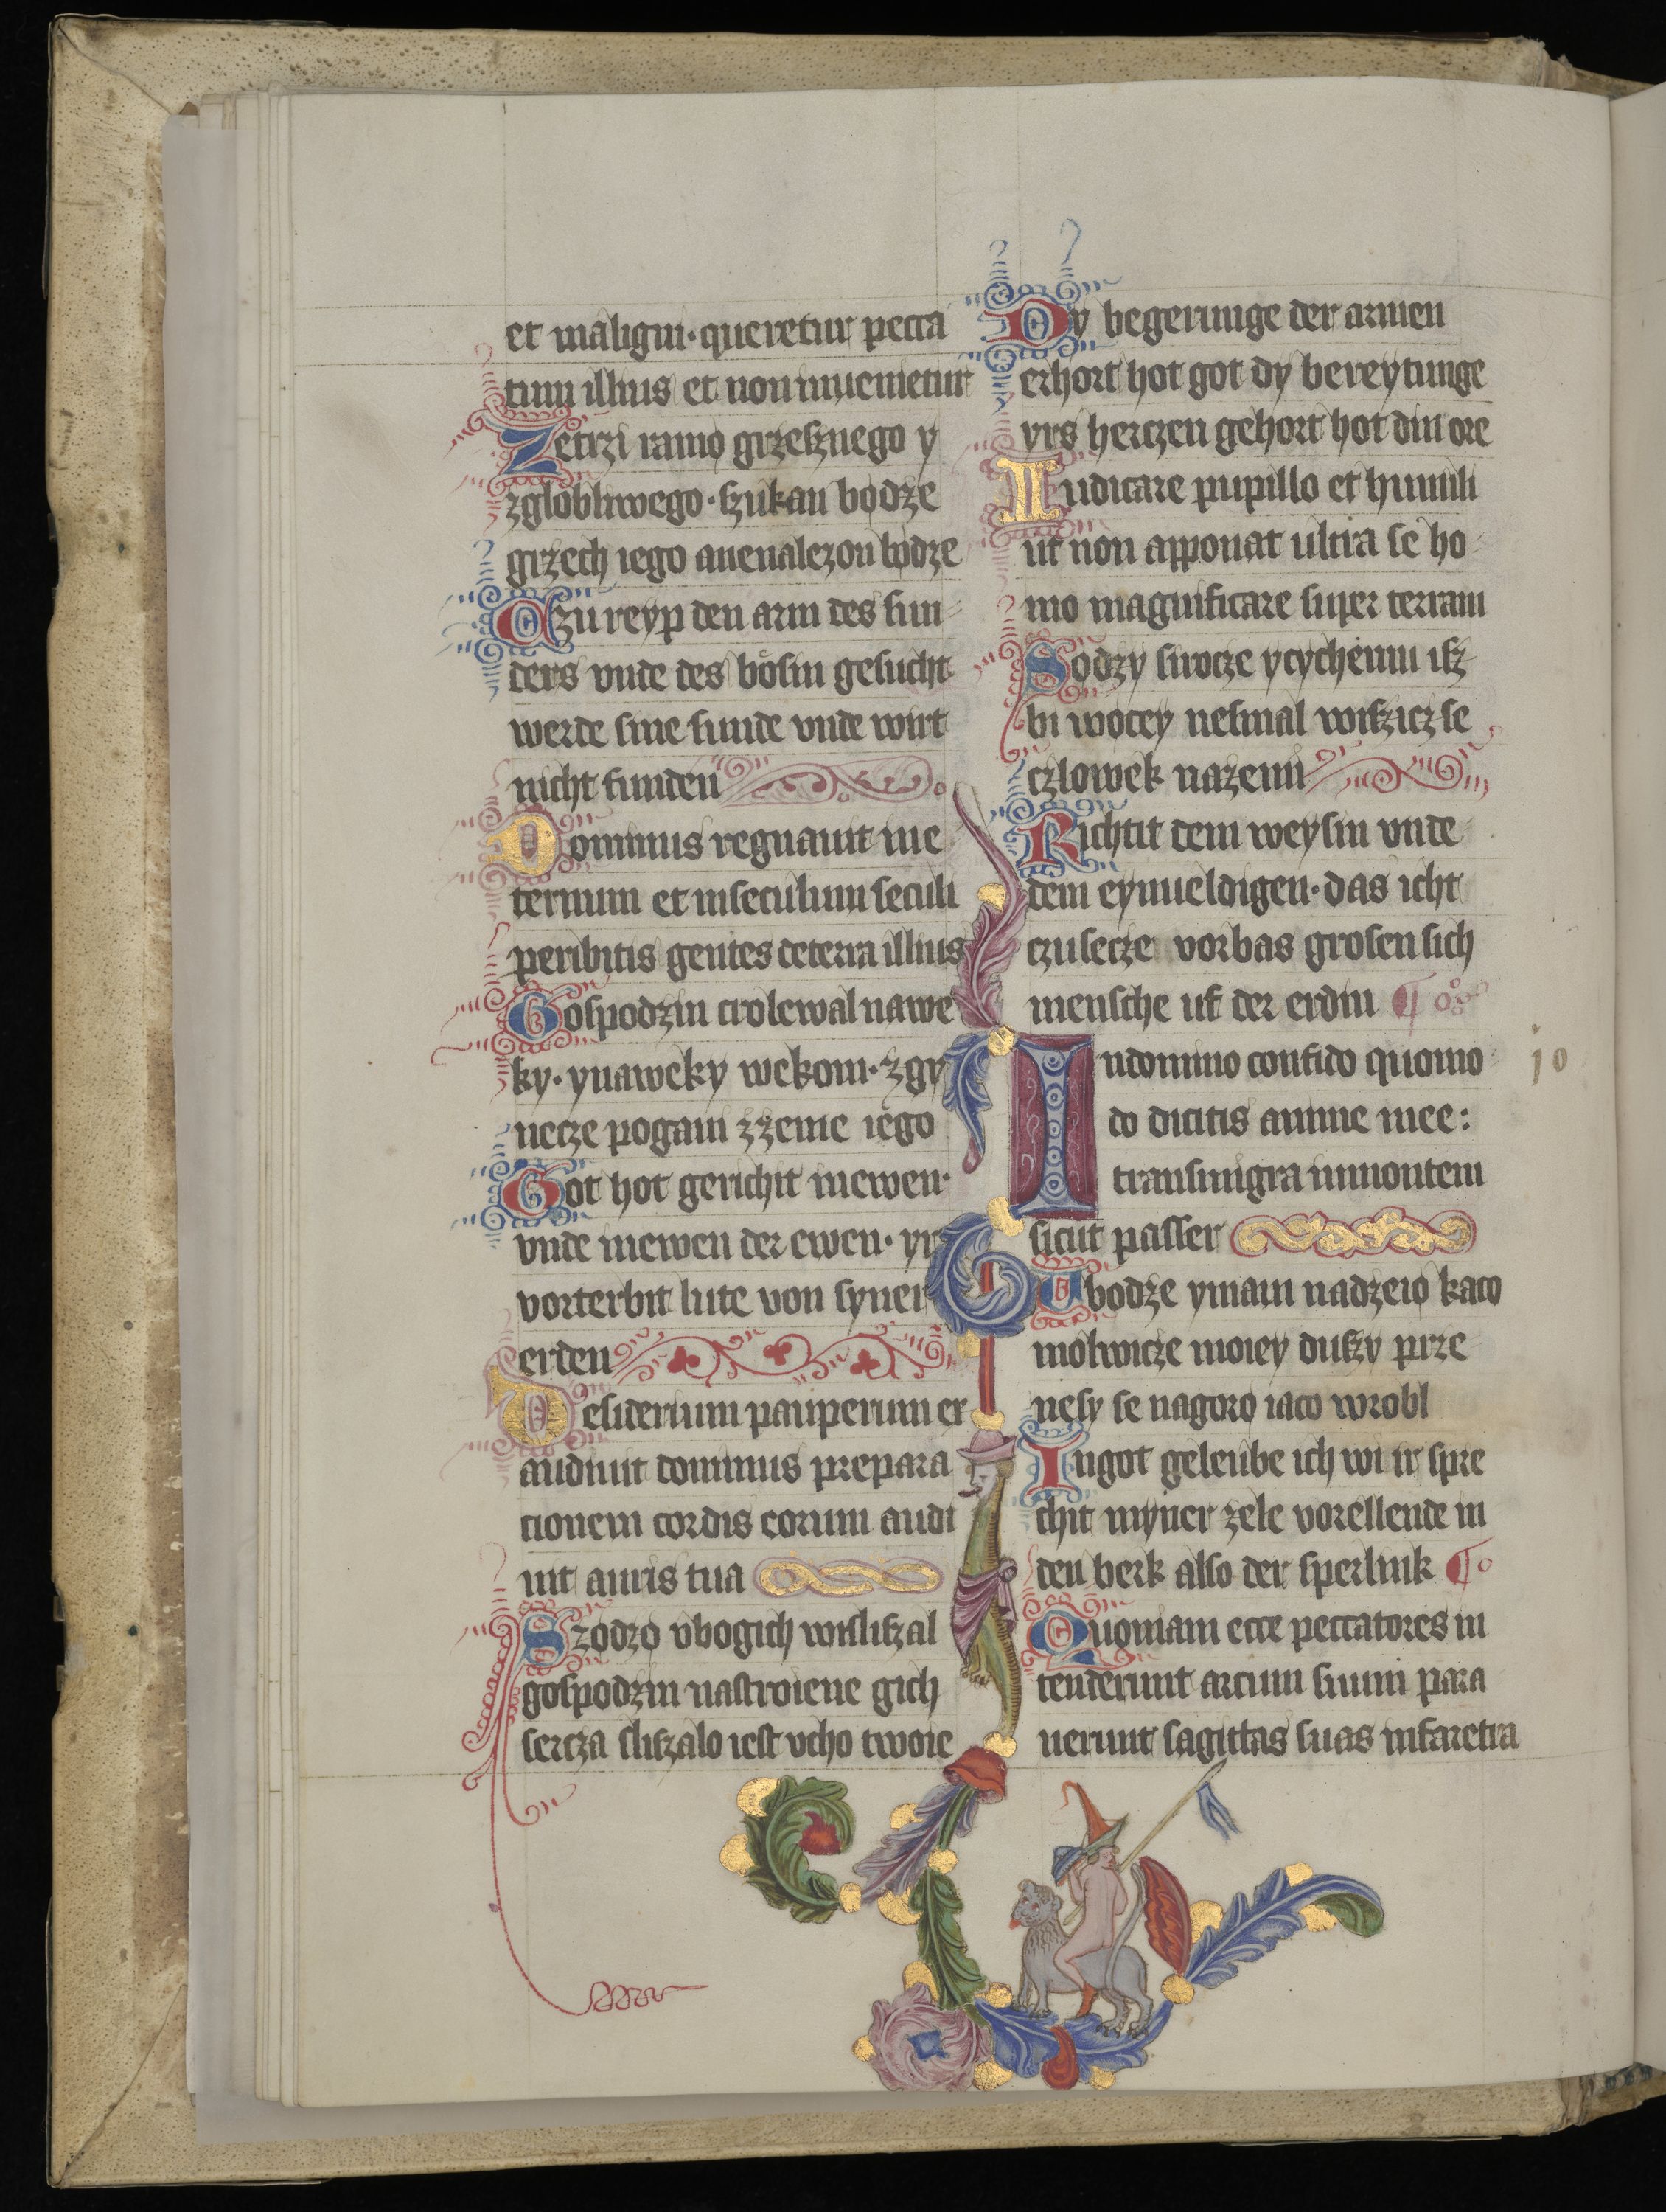 et maligni·queretur pecca
tum illius et non inuenietur
Zetrzi ramo grzesznego y
zglobliwego·szukan bodze
grzech iego anenalezon bodze
Czureyp den arm des sun
ders vnde des bösin gesucht
werde sine sunde vnde wirt
nicht funden
Dominus regnauit ine
ternum et inseculum seculi
peribitis gentes deterra illius
Gospodzin crolewal nawe
ky·ynaweky wekom·zgy
necze pogani zzeme iego
Got hot gerichit inewen·
vnde inewen der ewen·yr
vorterbit lute von syner
erden
Desiderium pauperum ex
audiuit dominus prepara
cionem cordis eorum audi
uit auris tua
Szodzo vbogich wisliszal
gospodzin nastroiene gich
sercza sliszalo iest vcho twoie
Dy begerunge der armen
erhort hot got dy bereytunge
yrs herczen gehort hot din ore
Iudicare pupillo et humili
ut non apponat ultra se ho
mo magnificare super terram
Sodzy sirocze ycychemu isz
bi wocey nesmal wiszicz se
czlowek nazemi
Richtit dem weysin vnde
dem eynueldigen·das icht
czusecze vorbas grosen sich
mensche uf der erdin
Indomino confido quomo
do dicitis anime mee:
transmigra inmontem
sicut passer
Ubodze ymam nadzeio kaco
molwicze moiey duszy prze
nesy se nagoro iaco wrobl
Ingot geleube ich wi ir spre
chit myner zele vorellende in
den berk also der sperlink
Quoniam ecce peccatores in
tenderunt arcum suum para
uerunt sagittas suas infaretra
10